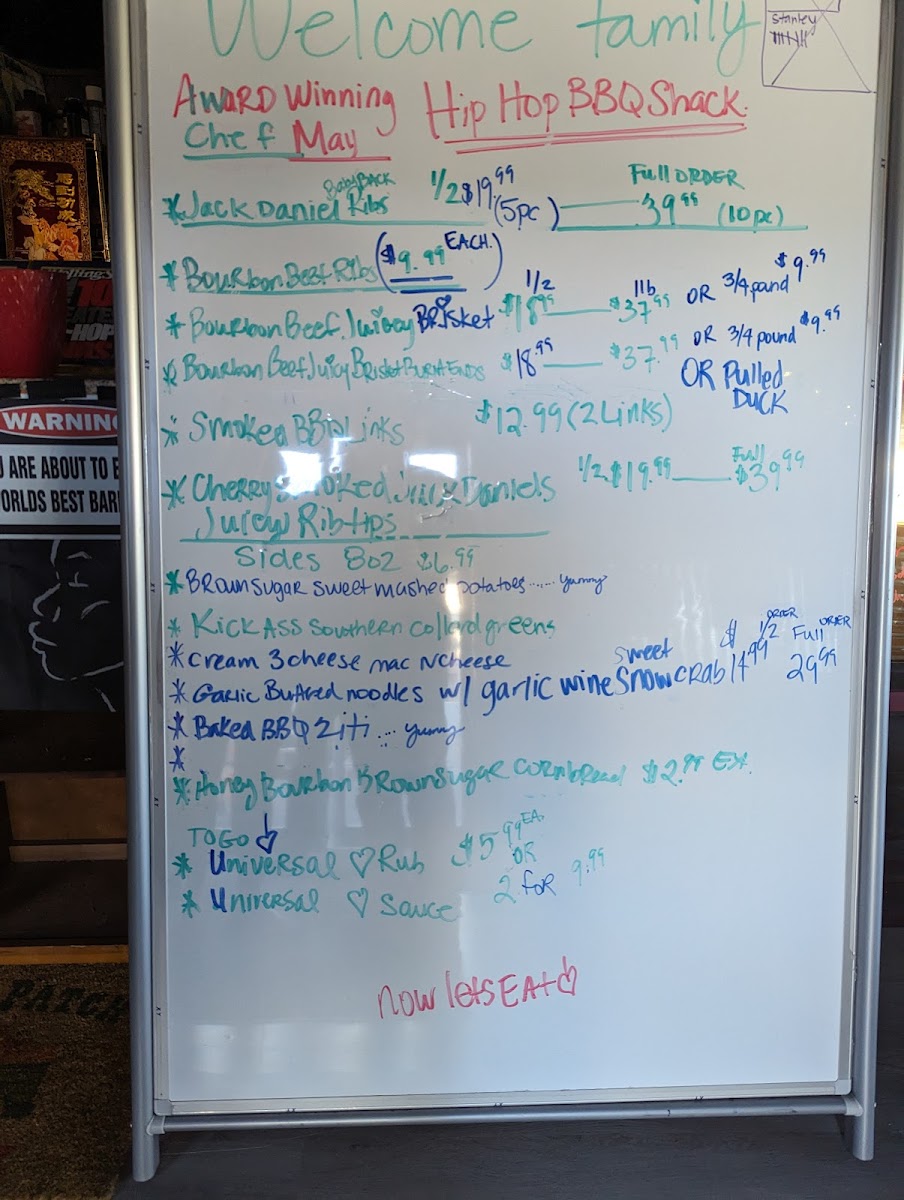 Welcome family
Stanley
Award Winning Hip Hop BBQ Shack.
Chef May
Baby BACK
* Jack Daniel Ribs 1/2 $19.99 (5pc) — Full ORDER 39.99 (10pc)
* Bourbon Beef Ribs ($9.99 EACH.)
* Bourbon Beef Juicey BRisket 1/2 $18.99 — 1lb $37.99 OR 3/4 pound $9.99
* Bourbon Beef Juicy Brisket Burnt Ends $18.99 — $37.99 OR 3/4 pound $9.99
OR Pulled
DUCK
* Smoked BBQ Links $12.99 (2 Links)
* Cherry Smoked Jack Daniels 1/2 $19.99 — Full $39.99
Juicy Rib tips
Sides 8oz $6.99
* Brown sugar sweet mashed potatoes ...... yummy
* Kick Ass Southern Collard greens
* Cream 3 cheese mac N cheese
* Garlic Buttered noodles w/ garlic wine sweet Snow CRab $ 1/2 ORDER 14.99 Full ORDER 29.99
* Baked BBQ Ziti ... yummy
*
* Honey Bourbon Brown Sugar Cornbread $2.99 Ex.
TOGO
* Universal ♡ Rub $5.99 EA
OR
* Universal ♡ Sauce 2 for 9.99
now lets EAt
WARNING
U ARE ABOUT TO E
ORLDS BEST BAR
PATCH